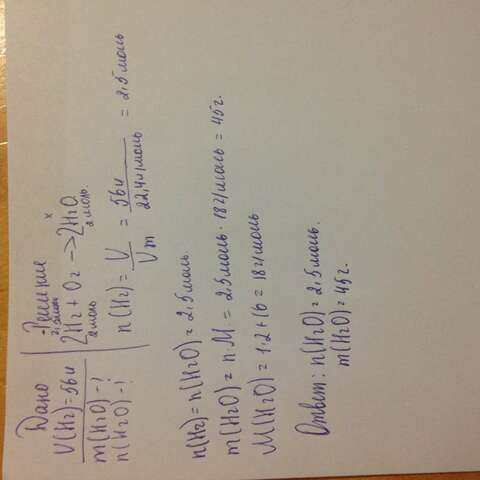 Дано
V(H2)=56л
m(H2O)-?
n(H2O)-?
Решение
2,5моль x
2H2 + O2 -> 2H2O
2моль 2моль.
n(H2) = V/Vm = 56л/22,4л/моль = 2,5моль
n(H2)=n(H2O)=2,5моль.
m(H2O) = n·M = 2,5моль · 18г/моль = 45г.
M(H2O) = 1·2+16 = 18г/моль
Ответ: n(H2O)=2,5моль.
m(H2O)=45г.